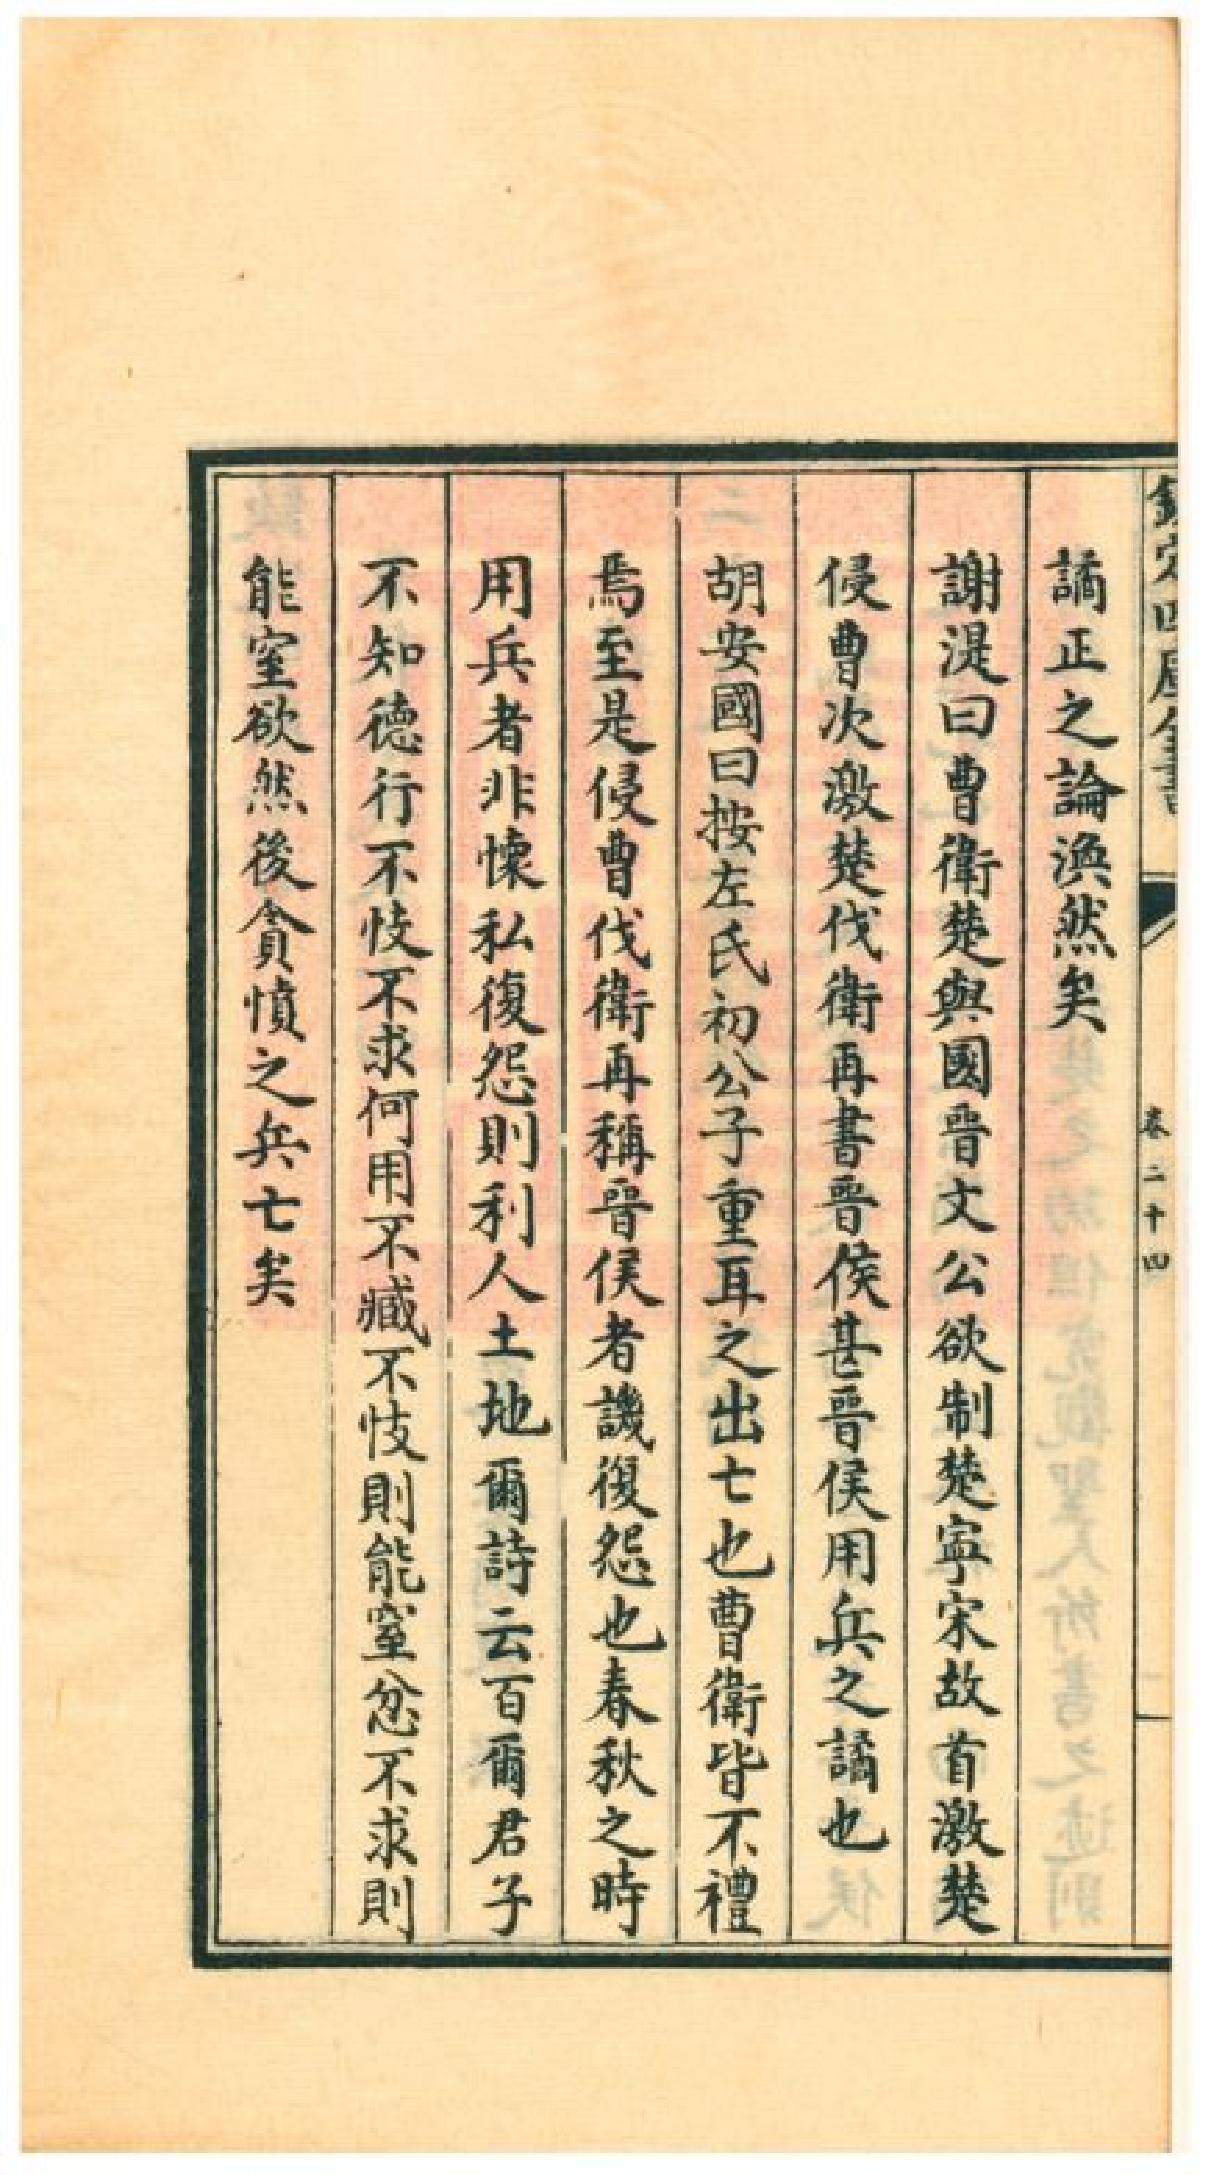 欽定四庫全書
卷二十四
譎正之論渙然矣
謝湜曰曹衛楚與國晉文公欲制楚寧宋故首激楚
侵曹次激楚伐衛再書晉侯甚晉侯用兵之譎也
胡安國曰按左氏初公子重耳之出亡也曹衛皆不禮
焉至是侵曹伐衛再稱晉侯者譏復怨也春秋之時
用兵者非懷私復怨則利人土地爾詩云百爾君子
不知德行不忮不求何用不臧不忮則能窒忿不求則
能窒欲然後貪憤之兵亡矣